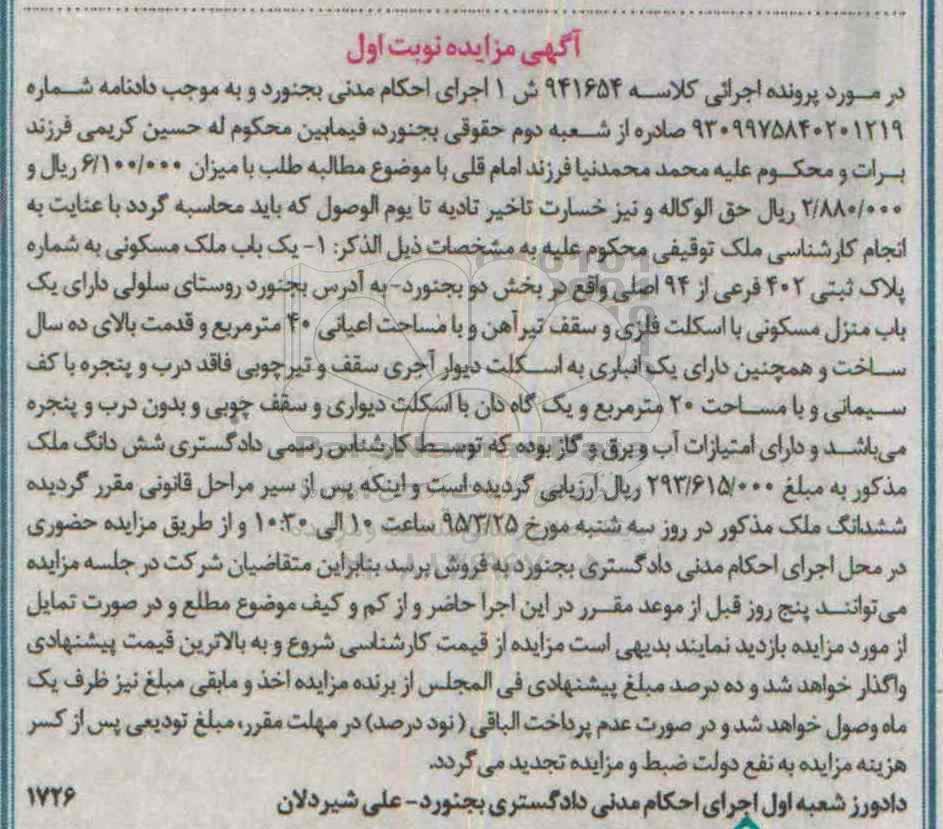 آگهی مزایده نوبت اول
در مورد پرونده اجرائی کلاسه ۹۴۱۶۵۴ ش ۱ اجرای احکام مدنی بجنورد و به موجب دادنامه شماره
۹۳۰۹۹۷۵۸۴۰۲۰۱۲۱۹ صادره از شعبه دوم حقوقی بجنورد، فیمابین محکوم له حسین کریمی فرزند
برات و محکوم علیه محمد محمدنیا فرزند امام قلی با موضوع مطالبه طلب با میزان ۶/۱۰۰/۰۰۰ ریال و
۲/۸۸۰/۰۰۰ ریال حق الوکاله و نیز خسارت تاخیر تادیه تا یوم الوصول که باید محاسبه گردد با عنایت به
انجام کارشناسی ملک توقیفی محکوم علیه به مشخصات ذیل الذکر: ۱- یک باب ملک مسکونی به شماره
پلاک ثبتی ۴۰۲ فرعی از ۹۴ اصلی واقع در بخش دو بجنورد- به آدرس بجنورد روستای سلولی دارای یک
باب منزل مسکونی با اسکلت فلزی و سقف تیرآهن و با مساحت اعیانی ۴۰ مترمربع و قدمت بالای ده سال
ساخت و همچنین دارای یک انباری به اسکلت دیوار آجری سقف و تیرچوبی فاقد درب و پنجره با کف
سیمانی و با مساحت ۲۰ مترمربع و یک گاه دان با اسکلت دیواری و سقف چوبی و بدون درب و پنجره
می‌باشد و دارای امتیازات آب و برق و گاز بوده که توسط کارشناس رسمی دادگستری شش دانگ ملک
مذکور به مبلغ ۲۹۳/۶۱۵/۰۰۰ ریال ارزیابی گردیده است و اینکه پس از سیر مراحل قانونی مقرر گردیده
ششدانگ ملک مذکور در روز سه شنبه مورخ ۹۵/۳/۲۵ ساعت ۱۰ الی ۱۰:۳۰ و از طریق مزایده حضوری
در محل اجرای احکام مدنی دادگستری بجنورد به فروش برسد بنابراین متقاضیان شرکت در جلسه مزایده
می‌توانند پنج روز قبل از موعد مقرر در این اجرا حاضر و از کم و کیف موضوع مطلع و در صورت تمایل
از مورد مزایده بازدید نمایند بدیهی است مزایده از قیمت کارشناسی شروع و به بالاترین قیمت پیشنهادی
واگذار خواهد شد و ده درصد مبلغ پیشنهادی فی المجلس از برنده مزایده اخذ و مابقی مبلغ نیز ظرف یک
ماه وصول خواهد شد و در صورت عدم پرداخت الباقی (نود درصد) در مهلت مقرر، مبلغ تودیعی پس از کسر
هزینه مزایده به نفع دولت ضبط و مزایده تجدید می گردد.
دادورز شعبه اول اجرای احکام مدنی دادگستری بجنورد- علی شیردلان ۱۷۲۶